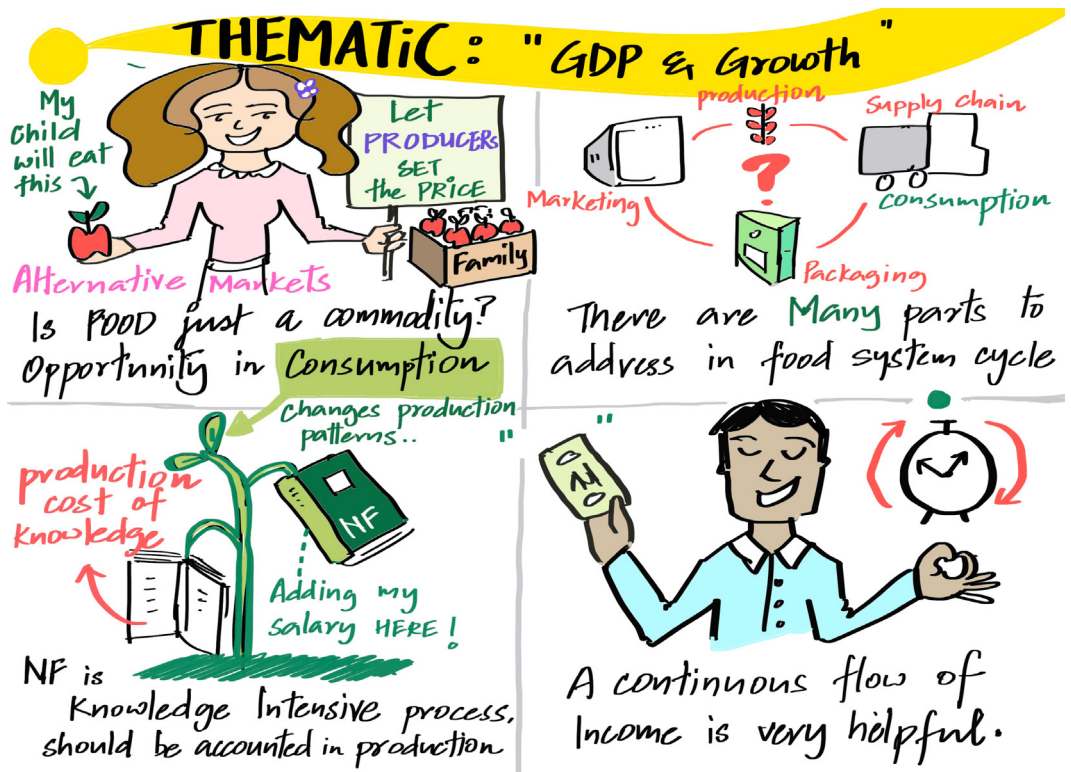 THEMATiC: "GDP & Growth"
My
child
will eat
this
Let
PRODUCERs
SET
the PRICE
Family
Alternative Markets
Is FOOD just a commodity?
Opportunity in Consumption
production
Supply Chain
?
Marketing
Consumption
Packaging
There are Many parts to
address in food system cycle
changes production
patterns..
production
cost of
Knowledge
NF
Adding my
salary HERE!
NF is
Knowledge Intensive process,
should be accounted in production
" "
A continuous flow of
Income is very helpful.